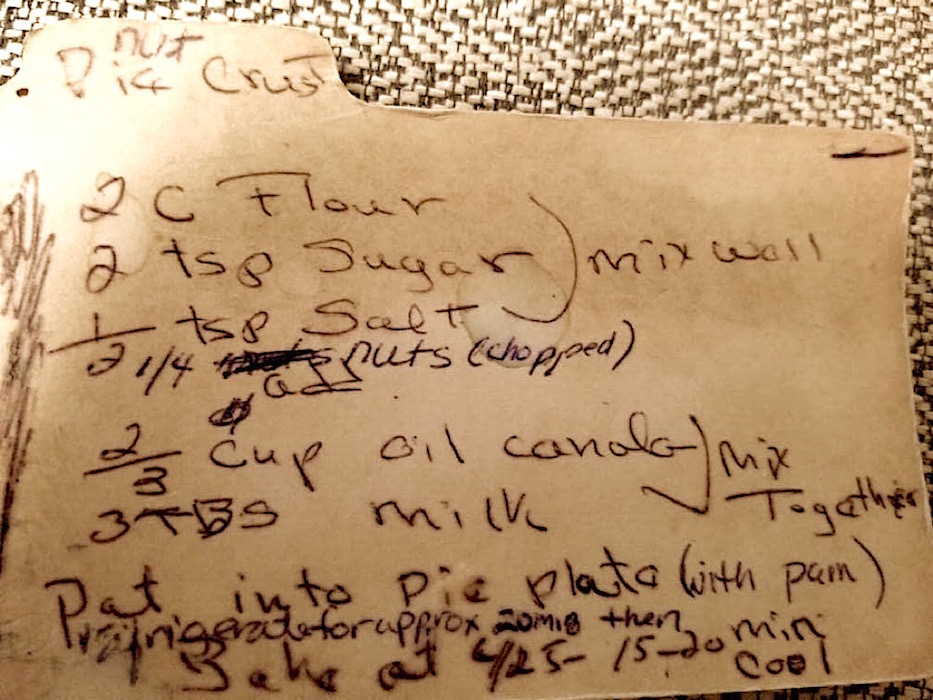 nut
Pie Crust
2 C Flour
2 tsp Sugar ) mix well
1/2 tsp Salt
1/4 nuts (chopped)
2/3 cup oil canola ) mix
3 TBS milk Together
Pat into pie plate (with pam)
refrigerate for approx 20 min then
Bake at 425- 15-20 min
cool